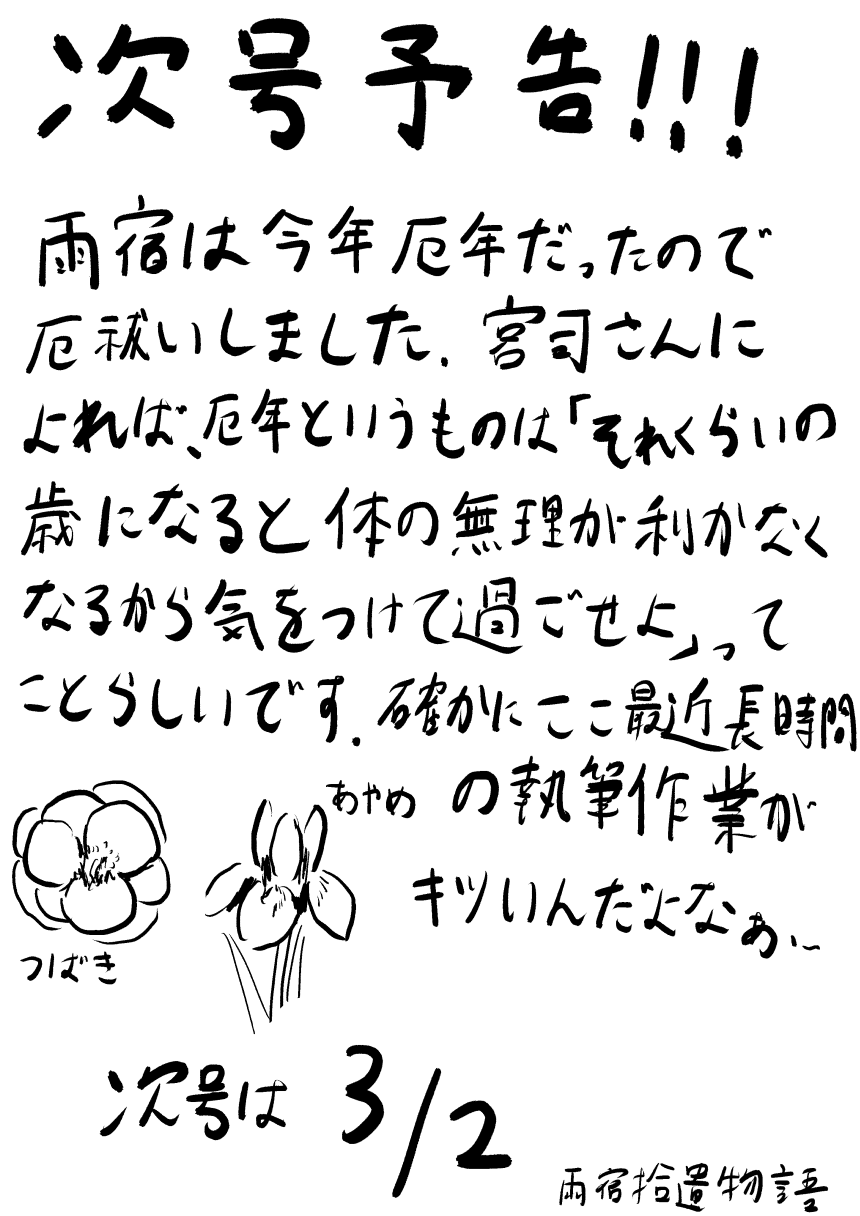 次号予告!!!
雨宿は今年厄年だったので
厄祓いしました。宮司さんに
よれば、厄年というものは「それくらいの
歳になると体の無理が利かなく
なるから気をつけて過ごせよ」って
ことらしいです。確かにここ最近長時間
の執筆作業が
キツいんだよなぁ…
あやめ
つばき
次号は 3/2
雨宿拾遺物語